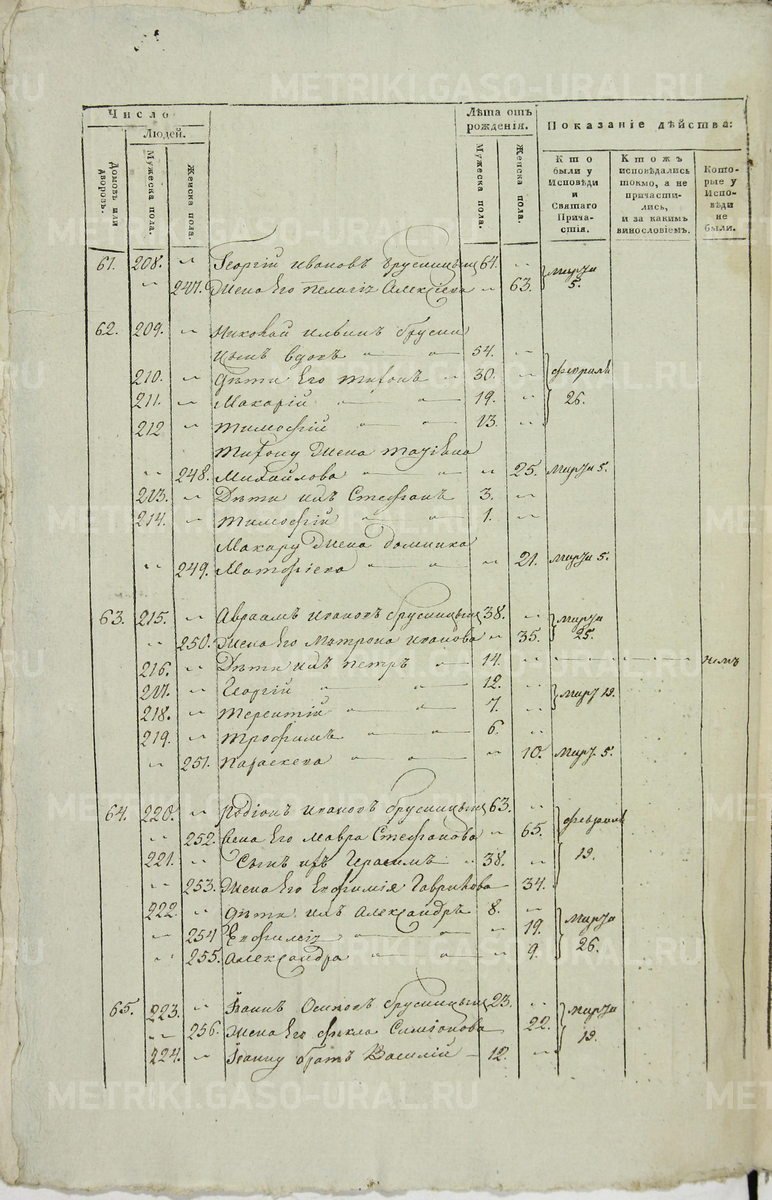 METRIKI.GASO-URAL.RU
Число
Людей.
Лѣта отъ рожденія.
Показаніе дѣйства:
Домовъ или дворовъ.
Мужеска пола.
Женска пола.
Мужеска пола.
Женска пола.
Кто были у Исповѣди и Святаго Причастія.
Ктожъ исповѣдались токмо, а не причастились, и за какимъ винословіемъ.
Которые у Исповѣди не были.
61. 208. „ Георгій Ивановъ Брусницынъ 64. „ Марта
„ 247. Жена Его Пелагія Алексѣева „ 63. 5.
62. 209. „ Николай Ильинъ Брусни
цынъ вдовъ „ „ 54. „
210. „ Дѣти Его Тифонъ „ 30. „ Февраля
211. „ Макарій „ „ 19. „ 26.
212 „ Тимофѣй „ „ 13. „
Тифону Жена
„ 248. Михайлова „ „ „ 25. Марта 5.
213. „ Дѣти ихъ Стефанъ „ 3. „
214. „ Тимофѣй „ „ 1. „
Макару Жена Домника
„ 249. Матофіева „ „ „ 21. Марта 5.
63. 215. „ Авраамъ Ивановъ Брусницынъ 38. „ Марта
„ 250. Жена Его Матрона Иванова „ 35. 25.
216. „ Дѣти ихъ Петръ „ 14. „ „ „
217. „ Георгій „ „ 12. „ Мар: 19.
218. „ Терентій „ „ 7. „
219. „ Трофимъ „ „ 6. „
„ 251. Параскева „ „ „ 10. Мар: 5.
64. 220. „ Родіонъ Ивановъ Брусницынъ 63. „ Февраля
„ 252. Жена Его Мавра Стефанова „ 65. 19.
221. „ Сынъ ихъ Герасимъ „ 38. „
„ 253. Жена Его Евфимія Гаврилова 34.
222. „ Дѣти ихъ Александръ 8. „ Марта
„ 254 Евфимія „ „ „ 19. 26.
„ 255. Александра „ „ „ 9.
65. 223. „ Іоаннъ Осиповъ Брусницынъ 23. „ Марта
„ 256. Жена Его Фекла Симіонова 22. 19.
224. „ Іоанну братъ Василій „ 12. „
METRIKI.GASO-URAL.RU